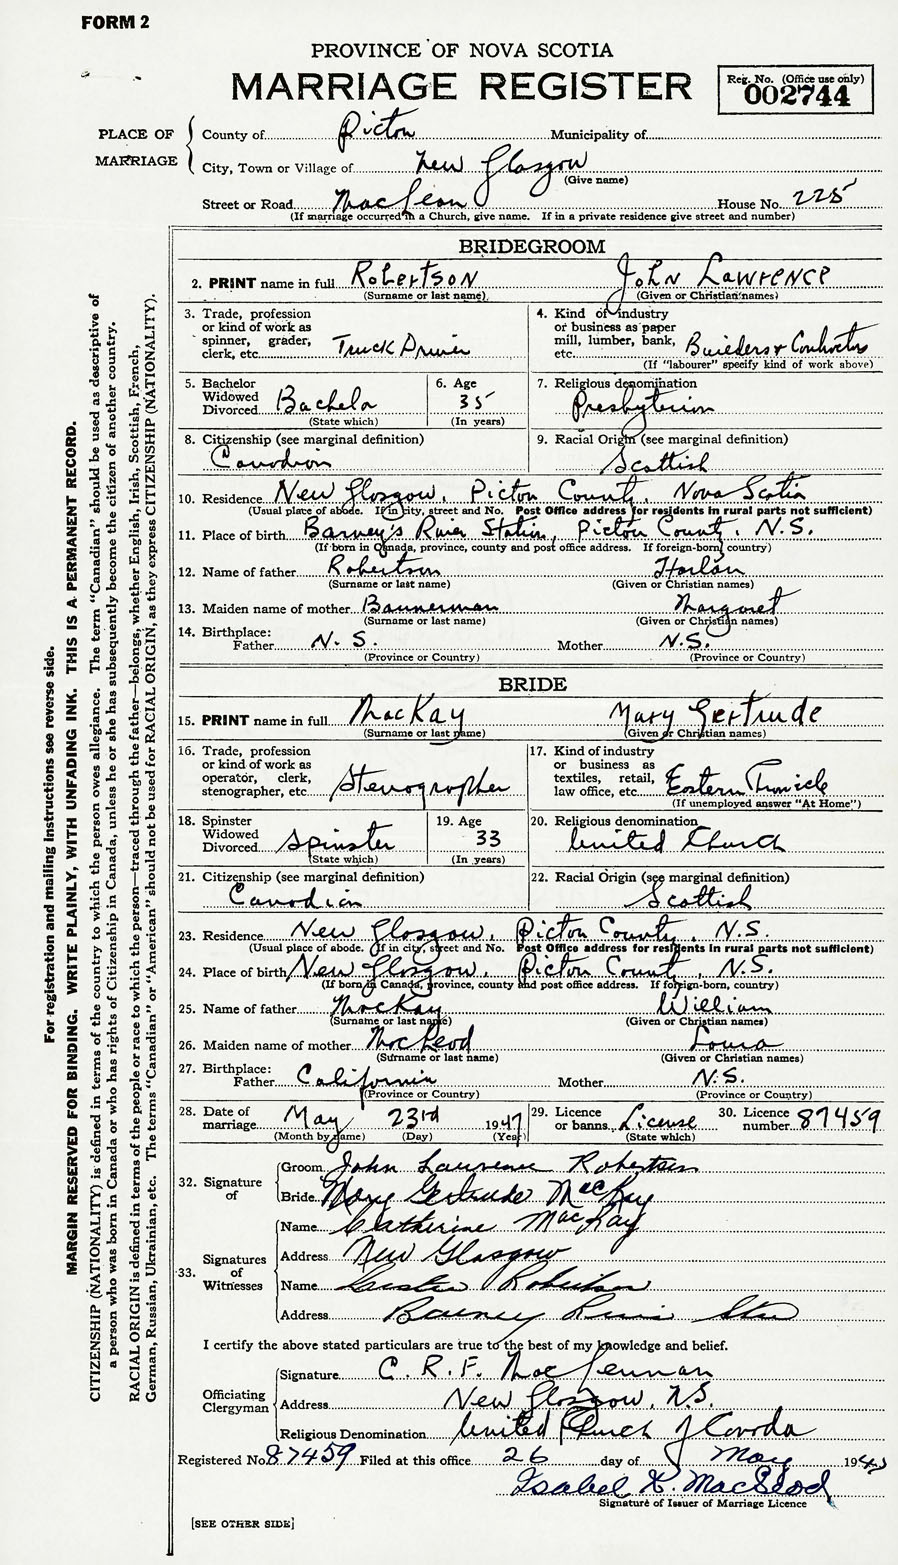 FORM 2
PROVINCE OF NOVA SCOTIA
MARRIAGE REGISTER
Reg. No. (Office use only)
002744
PLACE OF MARRIAGE
County of Pictou Municipality of
City, Town or Village of New Glasgow
(Give name)
Street or Road House No. 225
(If marriage occurred in a Church, give name. If in a private residence give street and number)
BRIDEGROOM
2. PRINT name in full Robertson John Lawrence
(Surname or last name) (Given or Christian names)
3. Trade, profession or kind of work as spinner, grader, clerk, etc. Truck Driver
4. Kind of industry or business as paper mill, lumber, bank, etc. Builders & Contractors
(If "labourer" specify kind of work above)
5. Bachelor Widowed Divorced Bachelor
(State which)
6. Age 35
(In years)
7. Religious denomination
Presbyterian
8. Citizenship (see marginal definition)
Canadian
9. Racial Origin (see marginal definition)
Scottish
10. Residence New Glasgow, Pictou County, Nova Scotia
(Usual place of abode. If in city, street and No. Post Office address for residents in rural parts not sufficient)
11. Place of birth Barney's River Station, Pictou County, N.S.
(If born in Canada, province, county and post office address. If foreign-born, country)
12. Name of father Robertson Harlan
(Surname or last name) (Given or Christian names)
13. Maiden name of mother Bannerman Margaret
(Surname or last name) (Given or Christian names)
14. Birthplace:
Father N. S. Mother N.S.
(Province or Country) (Province or Country)
BRIDE
15. PRINT name in full MacKay Mary Gertrude
(Surname or last name) (Given or Christian names)
16. Trade, profession or kind of work as operator, clerk, stenographer, etc. Stenographer
17. Kind of industry or business as textiles, retail, law office, etc. Eastern
(If unemployed answer "At Home")
18. Spinster Widowed Divorced Spinster
(State which)
19. Age 33
(In years)
20. Religious denomination
United Church
21. Citizenship (see marginal definition)
Canadian
22. Racial Origin (see marginal definition)
Scottish
23. Residence New Glasgow, Pictou County, N.S.
(Usual place of abode. If in city, street and No. Post Office address for residents in rural parts not sufficient)
24. Place of birth New Glasgow, Pictou County, N.S.
(If born in Canada, province, county and post office address. If foreign-born, country)
25. Name of father MacKay William
(Surname or last name) (Given or Christian names)
26. Maiden name of mother MacLeod Laura
(Surname or last name) (Given or Christian names)
27. Birthplace:
Father California Mother N.S.
(Province or Country) (Province or Country)
28. Date of marriage May 23rd 1947
(Month by name) (Day) (Year)
29. Licence or banns License
(State which)
30. Licence number 87459
32. Signature of
Groom John Lawrence Robertson
Bride Mary Gertrude MacKay
33. Signatures of Witnesses
Name Catherine MacKay
Address New Glasgow
Name Robertson
Address Barney River Stn
I certify the above stated particulars are true to the best of my knowledge and belief.
Officiating Clergyman
Signature C. R. F. MacLennan
Address New Glasgow, N.S.
Religious Denomination United Church of Canada
Registered No. 87459 Filed at this office 26 day of May 194
Isabel K. MacLeod
Signature of Issuer of Marriage Licence
[SEE OTHER SIDE]
For registration and mailing instructions see reverse side.
MARGIN RESERVED FOR BINDING. WRITE PLAINLY, WITH UNFADING INK. THIS IS A PERMANENT RECORD.
CITIZENSHIP (NATIONALITY) is defined in terms of the country to which the person owes allegiance. The term "Canadian" should be used as descriptive of
a person who was born in Canada or who has rights of Citizenship in Canada, unless he or she has subsequently become the citizen of another country.
RACIAL ORIGIN is defined in terms of the people or race to which the person—traced through the father—belongs, whether English, Irish, Scottish, French,
German, Russian, Ukrainian, etc. The terms "Canadian" or "American" should not be used for RACIAL ORIGIN, as they express CITIZENSHIP (NATIONALITY).